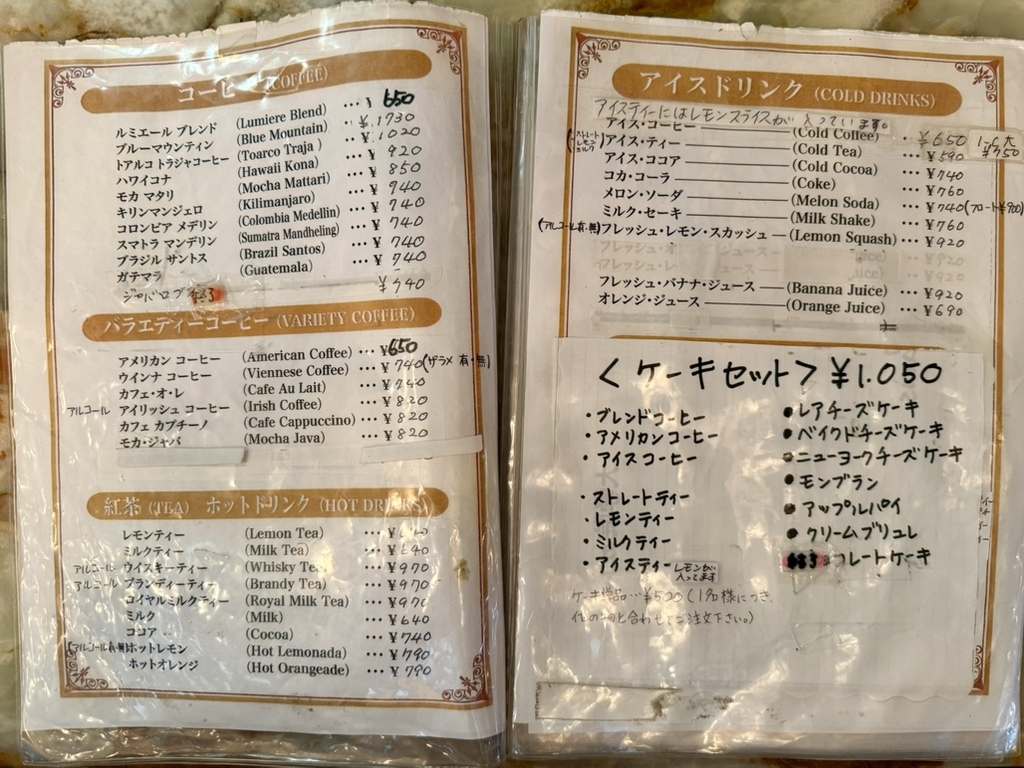 コーヒー (COFFEE)
ルミエール ブレンド (Lumiere Blend) ... ¥ 650
ブルーマウンティン (Blue Mountain) ... ¥ 1730
トアルコ トラジャコーヒー (Toarco Traja ) ... ¥ 1020
ハワイコナ (Hawaii Kona) ... ¥ 920
モカ マタリ (Mocha Mattari) ... ¥ 850
キリンマンジェロ (Kilimanjaro) ... ¥ 940
コロンビア メデリン (Colombia Medellin) ... ¥ 740
スマトラ マンデリン (Sumatra Mandheling) ... ¥ 740
ブラジル サントス (Brazil Santos) ... ¥ 740
ガテマラ (Guatemala) ... ¥ 740
バラエディーコーヒー (VARIETY COFFEE)
アメリカン コーヒー (American Coffee) ... ¥650
ウインナ コーヒー (Viennese Coffee) ... ¥740 (ザラメ 有・無)
カフェ・オ・レ (Cafe Au Lait) ... ¥740
アルコール アイリッシュ コーヒー (Irish Coffee) ... ¥820
カフェ カプチーノ (Cafe Cappuccino) ... ¥820
モカ・ジャバ (Mocha Java) ... ¥820
紅茶 (TEA) ホットドリンク (HOT DRINKS)
レモンティー (Lemon Tea) ... ¥640
ミルクティー (Milk Tea) ... ¥640
アルコール ウイスキーティー (Whisky Tea) ... ¥970
アルコール ブランディーティー (Brandy Tea) ... ¥970
ロイヤルミルクティー (Royal Milk Tea) ... ¥970
ミルク (Milk) ... ¥640
ココア (Cocoa) ... ¥740
(アルコール有・無) ホットレモン (Hot Lemonada) ... ¥790
ホットオレンジ (Hot Orangeade) ... ¥790
アイスドリンク (COLD DRINKS)
アイスティーにはレモンスライスが入っています。
アイス・コーヒー (Cold Coffee) ... ¥650
ストレート レモン ミルク アイス・ティー (Cold Tea) ... ¥590
アイス・ココア (Cold Cocoa) ... ¥740
コカ・コーラ (Coke) ... ¥760
メロン・ソーダ (Melon Soda) ... ¥740 (フロート¥900)
ミルク・セーキ (Milk Shake) ... ¥760
(アルコール有・無) フレッシュ・レモン・スカッシュ (Lemon Squash) ... ¥920
フレッシュ・バナナ・ジュース (Banana Juice) ... ¥920
オレンジ・ジュース (Orange Juice) ... ¥690
< ケーキセット > ¥1.050
・ブレンドコーヒー
・アメリカンコーヒー
・アイスコーヒー
・ストレートティー
・レモンティー
・ミルクティー
・アイスティー レモンが入ってます
●レアチーズケーキ
●ベイクドチーズケーキ
●ニューヨークチーズケーキ
●モンブラン
●アップルパイ
●クリームブリュレ
コレートケーキ
ケーキ単品…¥520 (1名様につき、
他の物と合わせてご注文下さい。)